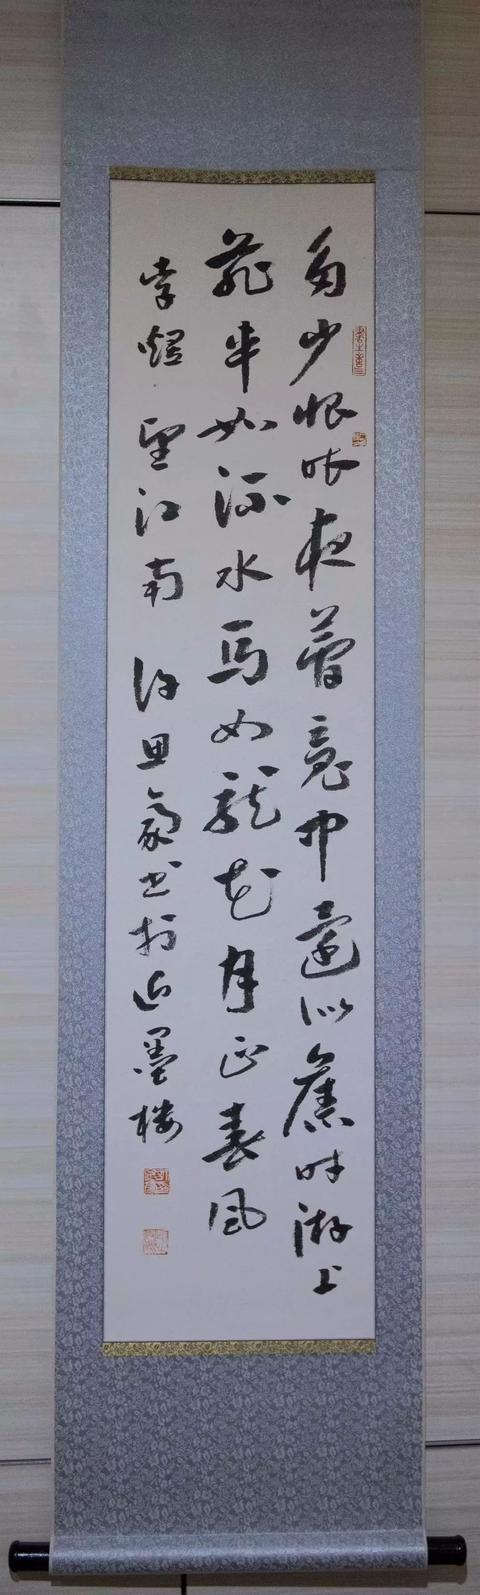 多少恨昨夜夢魂中還似舊時游上
苑車如流水馬如龍花月正春風
李煜 望江南 許思豪書於近墨樓